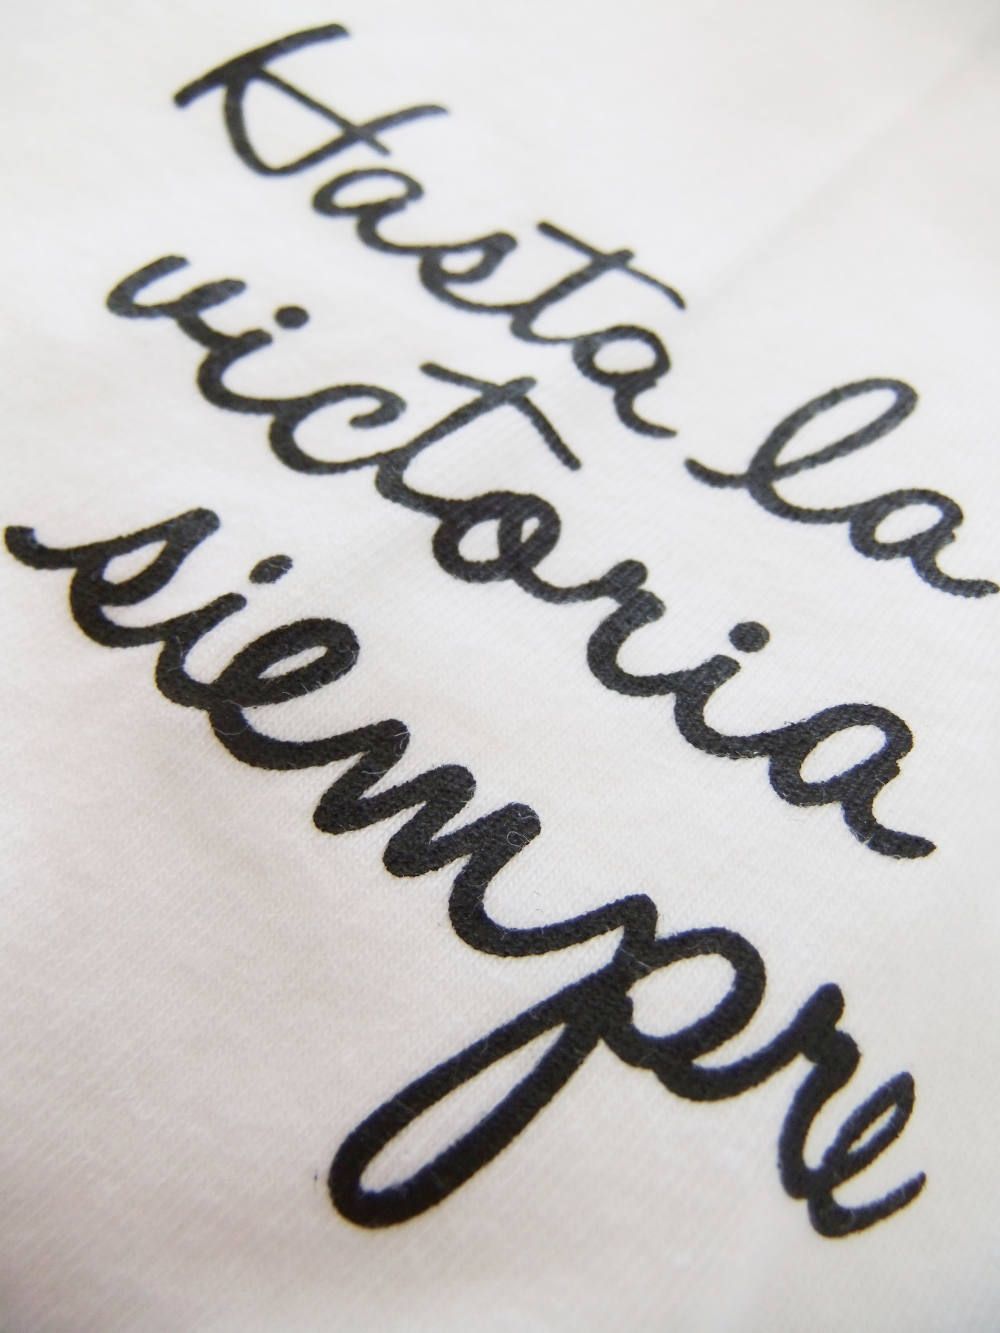 Hasta la
victoria
siempre